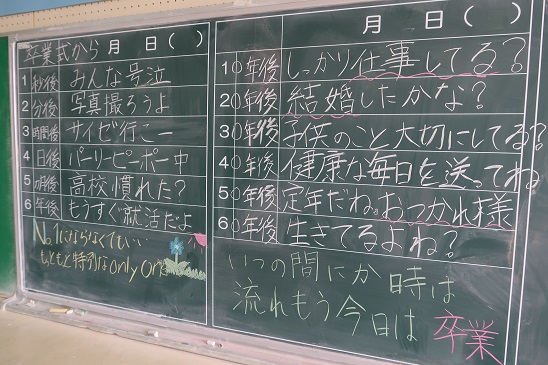 卒業式から 月 日( )
1秒後 みんな号泣
2分後 写真撮ろうよ
3時間後 サイゼ行こー
4日後 パーリーピーポー中
5ヵ月後 高校慣れた?
6年後 もうすぐ就活だよ
No.1にならなくてもいい
もともと特別なonly one
月 日( )
10年後 しっかり仕事してる?
20年後 結婚したかな?
30年後 子供のこと大切にしてる?
40年後 健康な毎日を送ってね
50年後 定年だね。おつかれ様
60年後 生きてるよね?
いつの間にか 時は
流れもう今日は 卒業